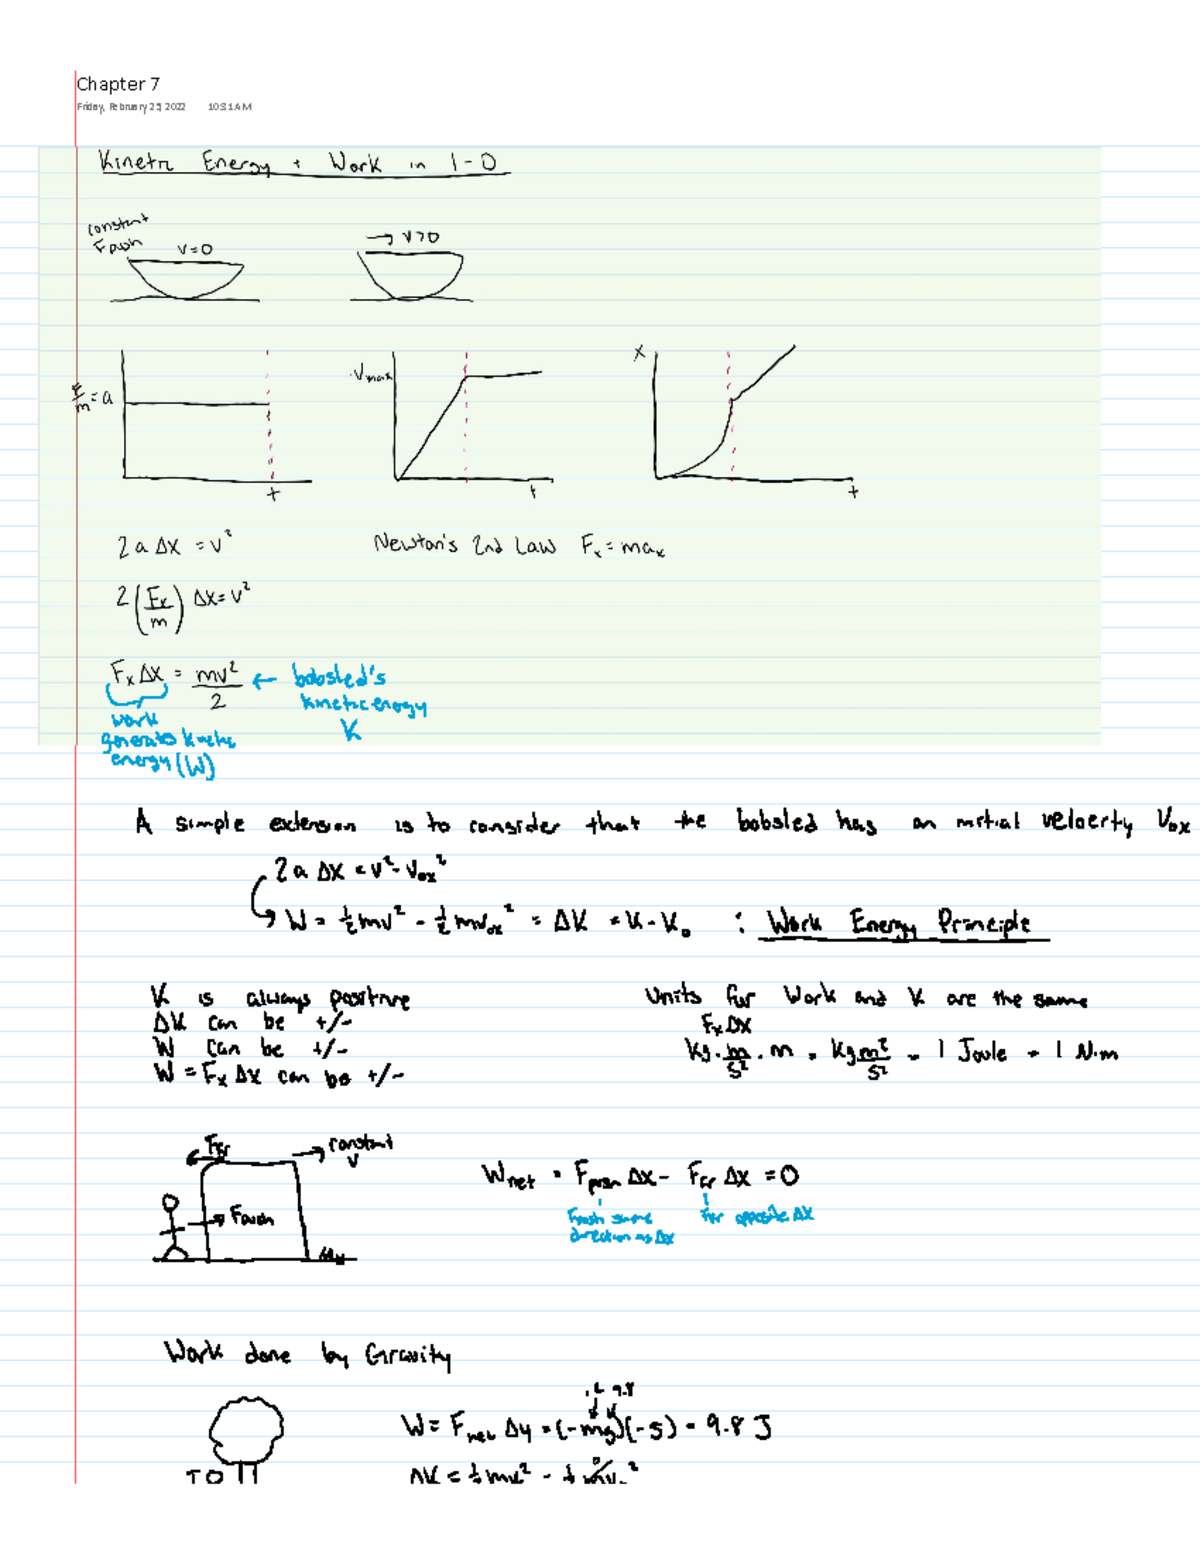 Chapter 7
Friday, February 25, 2022 10:31 AM
Kinetic Energy + Work in 1-D
constant
F push v=0
→ v>0
F/m = a
t
Vmax
t
x
t
2a Δx = v²
Newton's 2nd Law Fx = max
2(Fx/m) Δx = v²
Fx Δx = mv²/2 ← bobsled's
kinetic energy
K
work
generates kinetic
energy (W)
A simple extension is to consider that the bobsled has an initial velocity Vox
2a Δx = v² - Vox²
W = ½mv² - ½mvox² = ΔK = K - K₀ : Work Energy Principle
K is always positive
ΔK can be +/-
W can be +/-
W = Fx Δx can be +/-
Units for Work and K are the same
Fx Δx
kg · m/s² · m = kg m²/s² = 1 Joule = 1 N·m
Ffr
→ constant
v
→ Fpush
Wnet = Fpush Δx - Ffr Δx = 0
Fpush same
direction as Δx
Ffr opposite Δx
Work done by Gravity
.2 9.8
W = Fnet Δy = (-mg)(-5) = 9.8 J
T O
ΔK = ½mv² - ½mv₀²